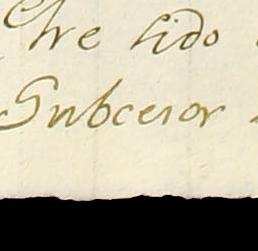 he sido
Subcesor